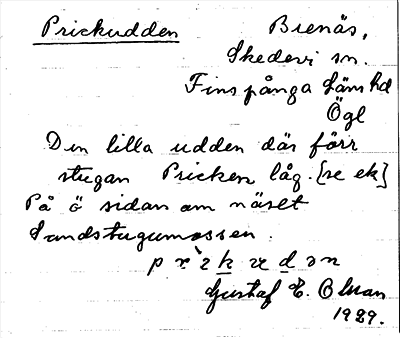 Prickudden Brenäs,
Skedevi sn.
Finspånga läns hd
Ögl
Den lilla udden där förr
stugan Pricken låg. [se ek]
På ö sidan om näset
Sandstugumossen.
Gustaf E. Olman
1929.